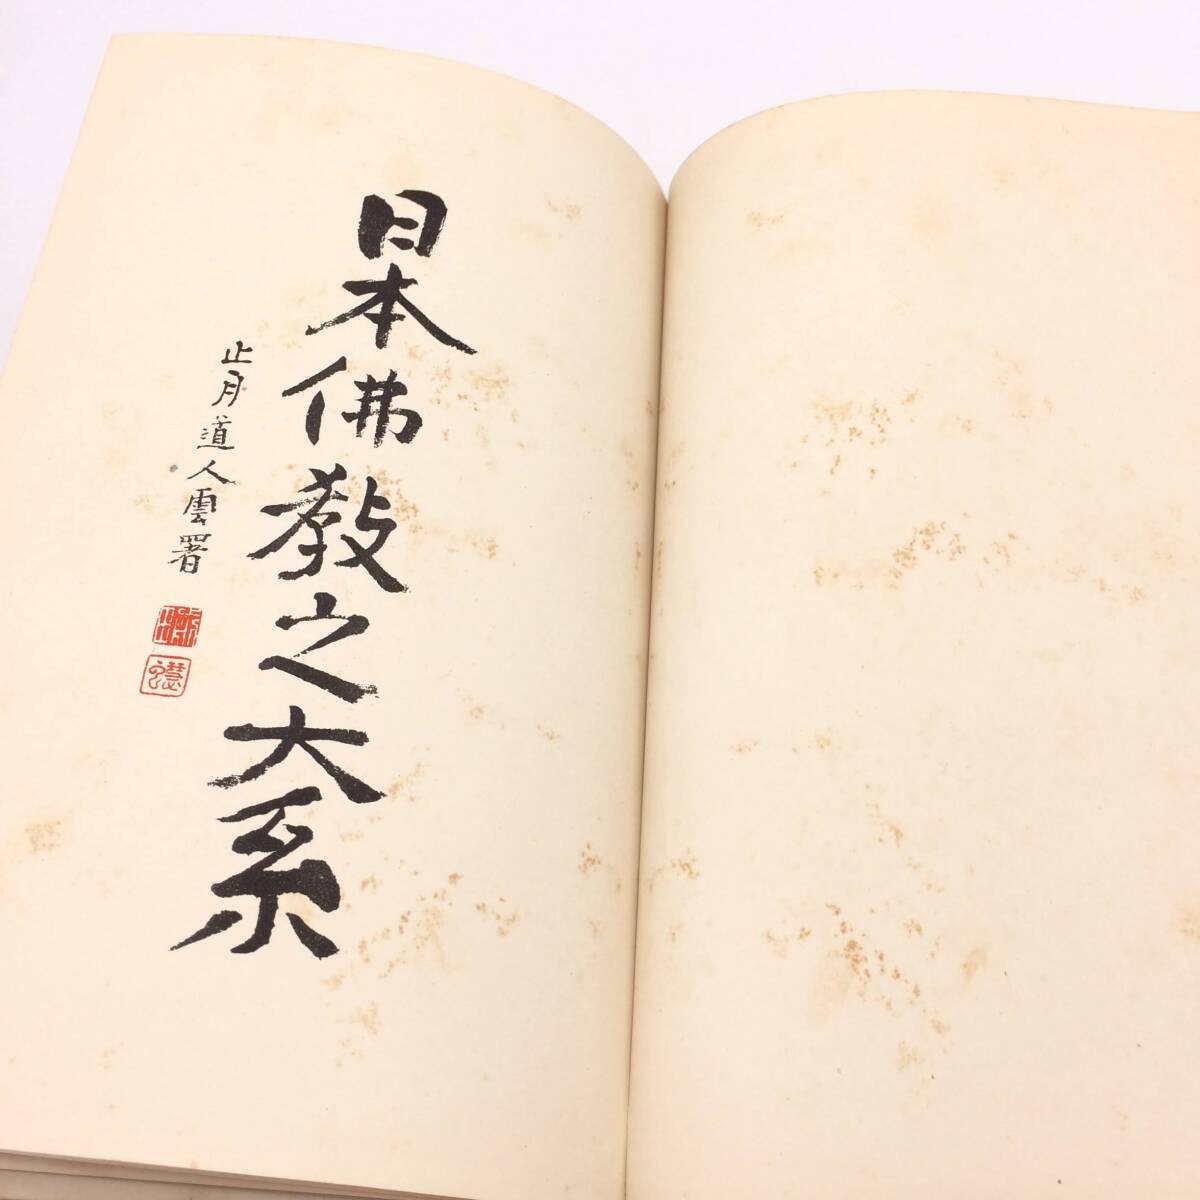 日本佛教之大系
止月道人雲署